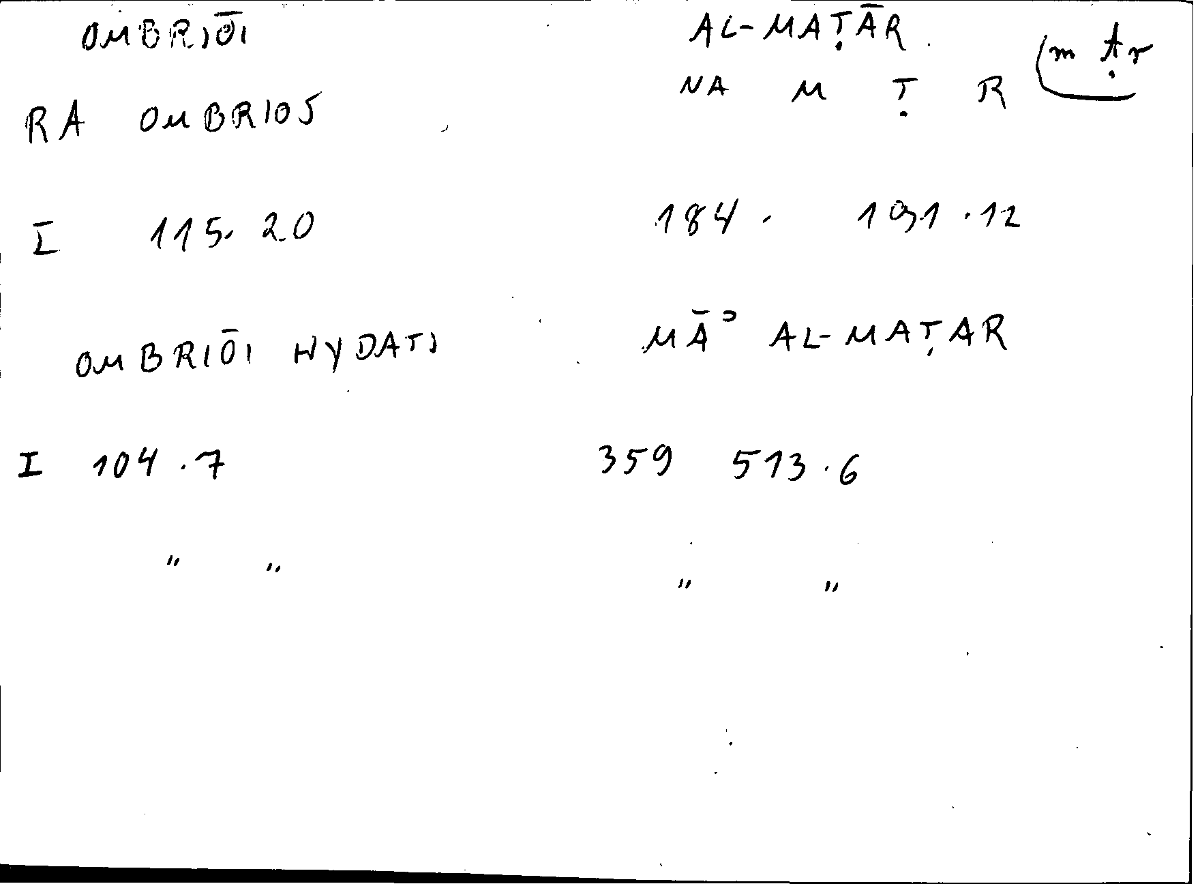 OMBRIŌI AL-MAṬĀR (mṭr
RA OMBRIOS NA M Ṭ R
I 115. 20 184. 191.12
OMBRIŌI HYDATI MĀʾ AL-MAṬAR
I 104.7 359 513.6
" " " "